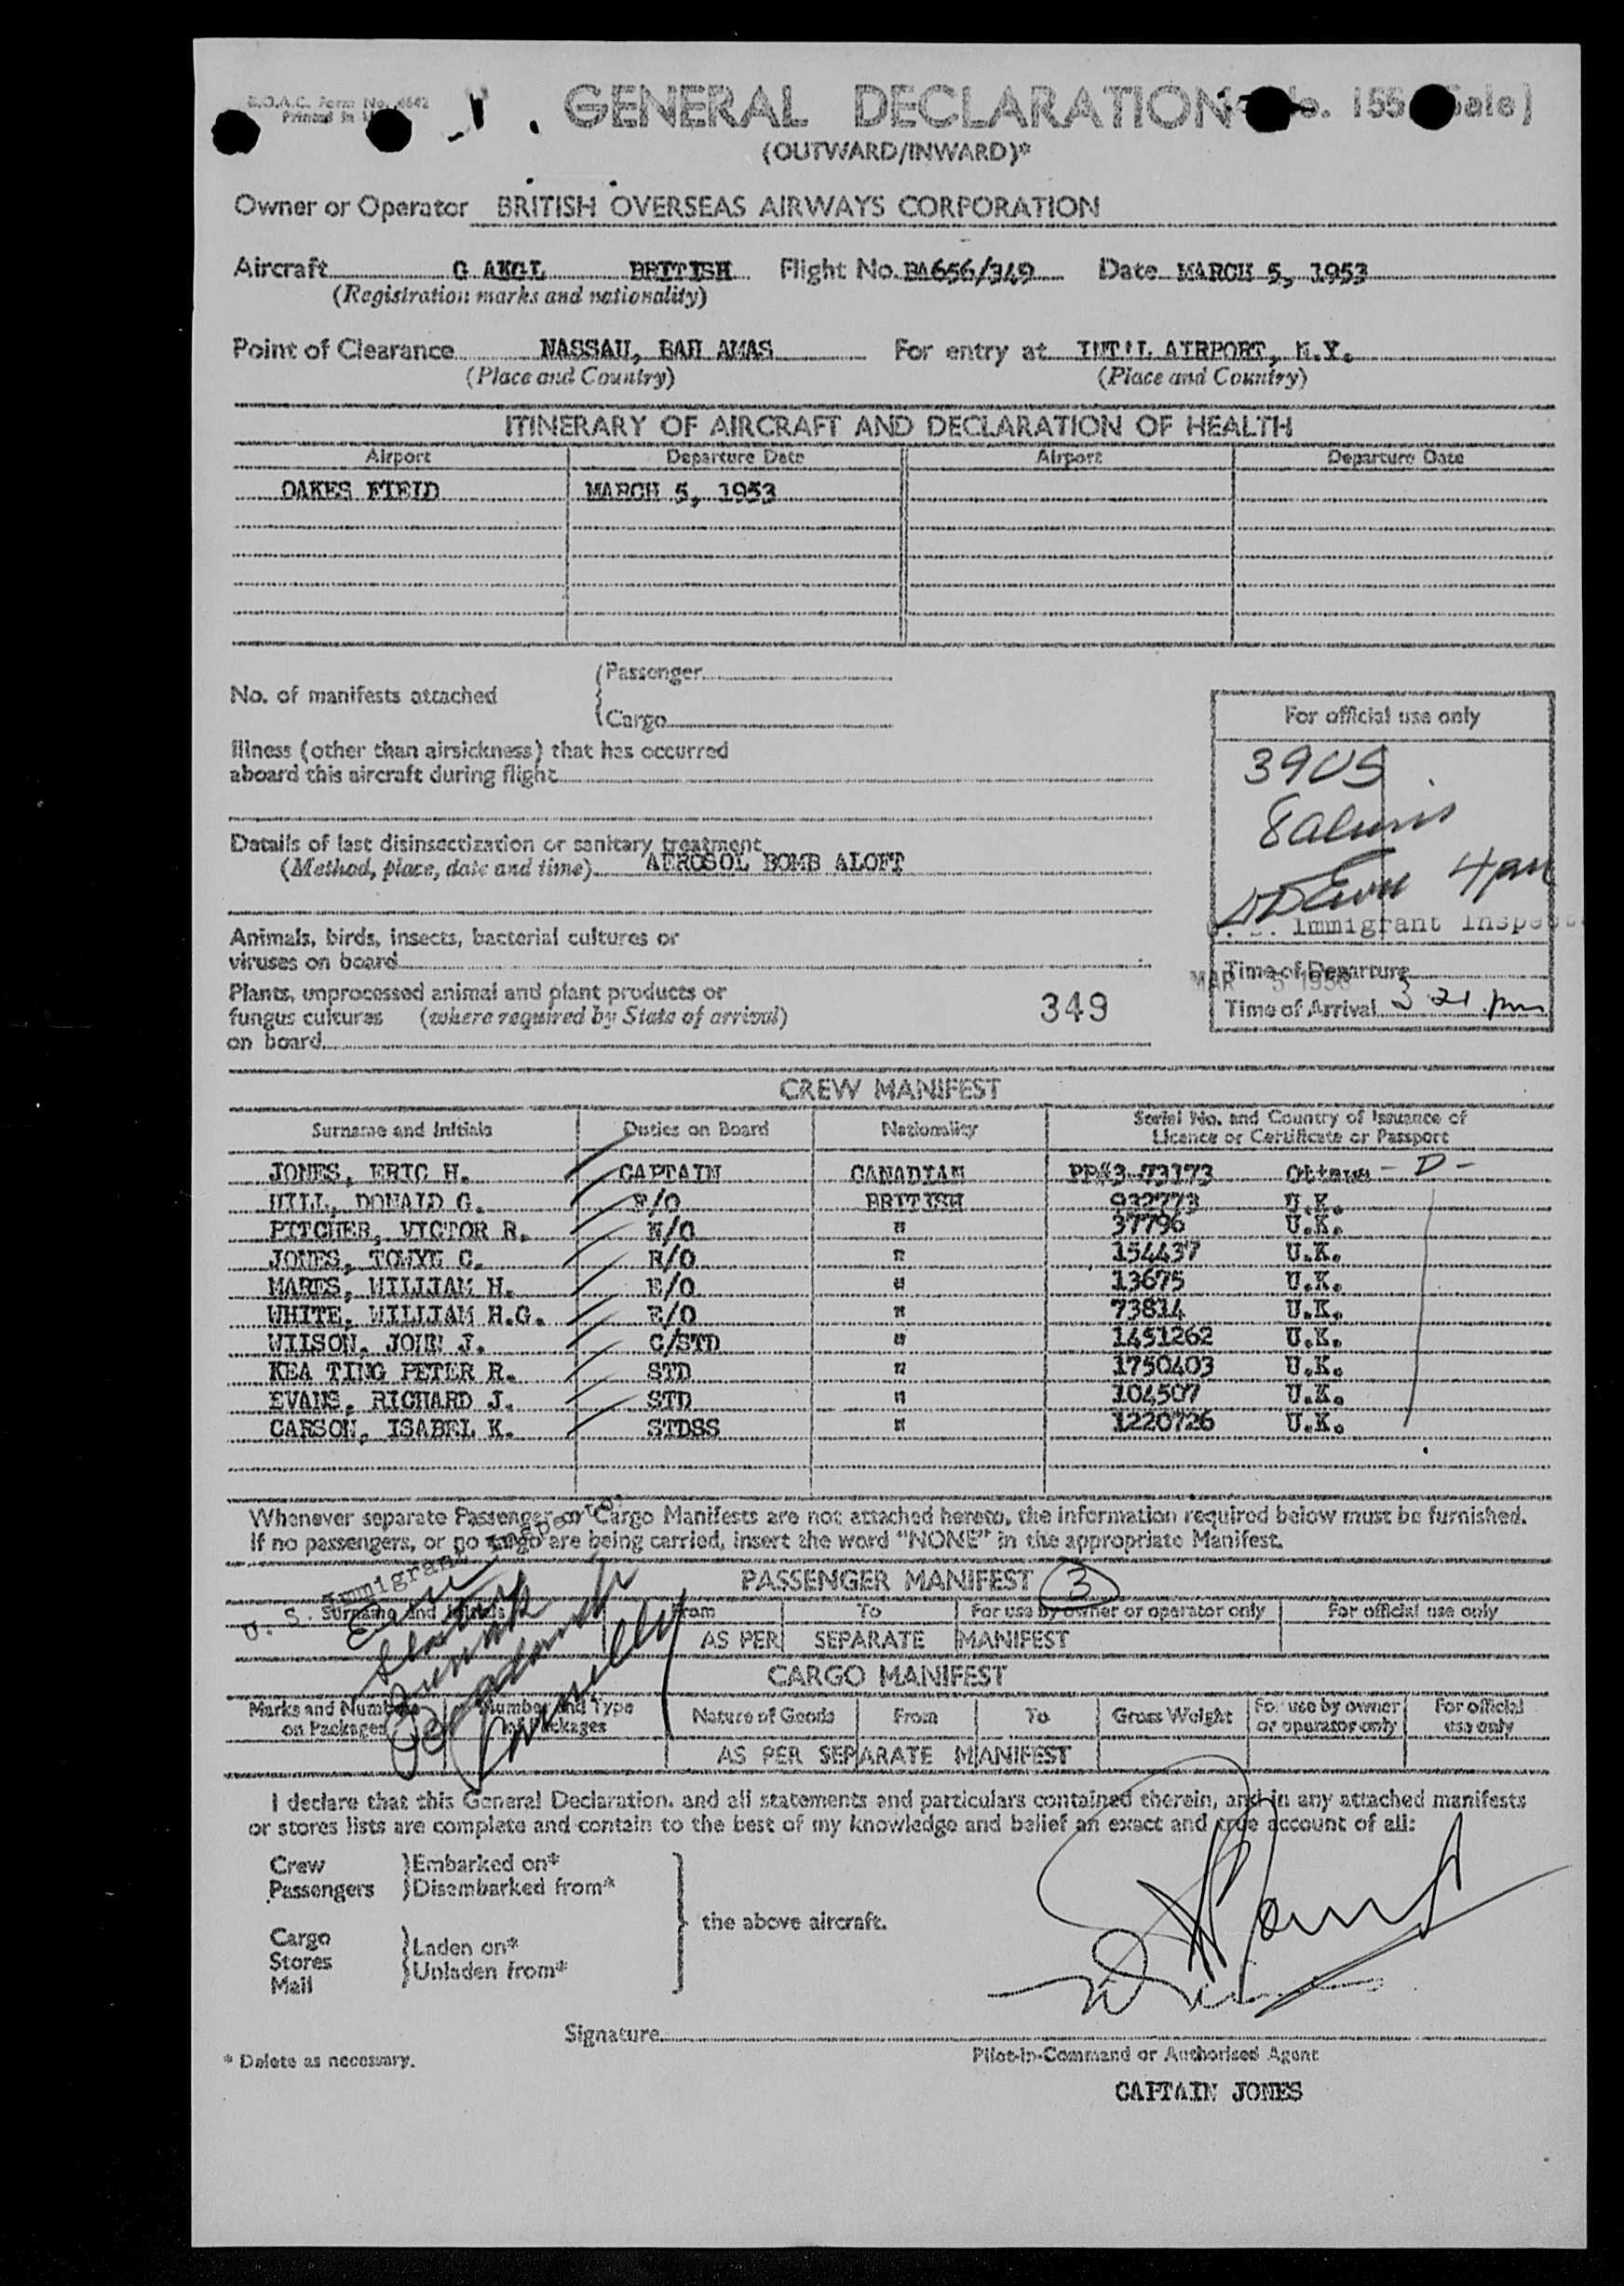 B.O.A.C. Form No. 4642
Printed in
GENERAL DECLARATION
(OUTWARD/INWARD)*
Owner or Operator BRITISH OVERSEAS AIRWAYS CORPORATION
Aircraft G AKGL BRITISH Flight No. BA656/349 Date MARCH 5, 1953
(Registration marks and nationality)
Point of Clearance NASSAU, BAH AMAS For entry at INT'L AIRPORT, N.Y.
(Place and Country) (Place and Country)
ITINERARY OF AIRCRAFT AND DECLARATION OF HEALTH
Airport Departure Date Airport Departure Date
OAKES FIELD MARCH 5, 1953
No. of manifests attached
Passenger
Cargo
Illness (other than airsickness) that has occurred
aboard this aircraft during flight
Details of last disinsectization or sanitary treatment
(Method, place, date and time) AEROSOL BOMB ALOFT
Animals, birds, insects, bacterial cultures or
viruses on board
Plants, unprocessed animal and plant products or
fungus cultures (where required by State of arrival)
on board
349
For official use only
39US
8 aliens
4pm
Immigrant Inspect
Time of Departure
MAR 5 195
Time of Arrival 3 21 pm
CREW MANIFEST
Surname and Initials Duties on Board Nationality Serial No. and Country of Issuance of
Licence or Certificate or Passport
JONES, ERIC H. CAPTAIN CANADIAN PP#3-73173 Ottawa - D -
HILL, DONALD G. F/O BRITISH 932773 U.K.
PITCHER, VICTOR R. N/O " 37796 U.K.
JONES, TOWYN C. R/O " 154437 U.K.
MARES, WILLIAM H. E/O " 13675 U.K.
WHITE, WILLIAM H.G. E/O " 73814 U.K.
WILSON, JOHN J. C/STD " 1451262 U.K.
KEA TING PETER R. STD " 1750403 U.K.
EVANS, RICHARD J. STD " 104507 U.K.
CARSON, ISABEL K. STDSS " 1220726 U.K.
Whenever separate Passenger or Cargo Manifests are not attached hereto, the information required below must be furnished.
If no passengers, or no cargo are being carried, insert the word "NONE" in the appropriate Manifest.
U. S. Immigrant Inspector
PASSENGER MANIFEST 3
Surname and Initials From To For use by owner or operator only For official use only
AS PER SEPARATE MANIFEST
CARGO MANIFEST
Marks and Numbers on Packages Number and Type of Packages Nature of Goods From To Gross Weight For use by owner or operator only For official use only
AS PER SEPARATE MANIFEST
I declare that this General Declaration, and all statements and particulars contained therein, and in any attached manifests
or stores lists are complete and contain to the best of my knowledge and belief an exact and true account of all:
Crew Embarked on*
Passengers Disembarked from*
the above aircraft.
Cargo
Stores Laden on*
Mail Unladen from*
Signature
* Delete as necessary.
Pilot-in-Command or Authorised Agent
CAPTAIN JONES